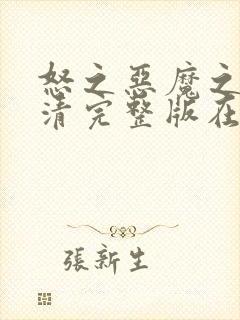 怒之惡魔之
清完整版在
張新生